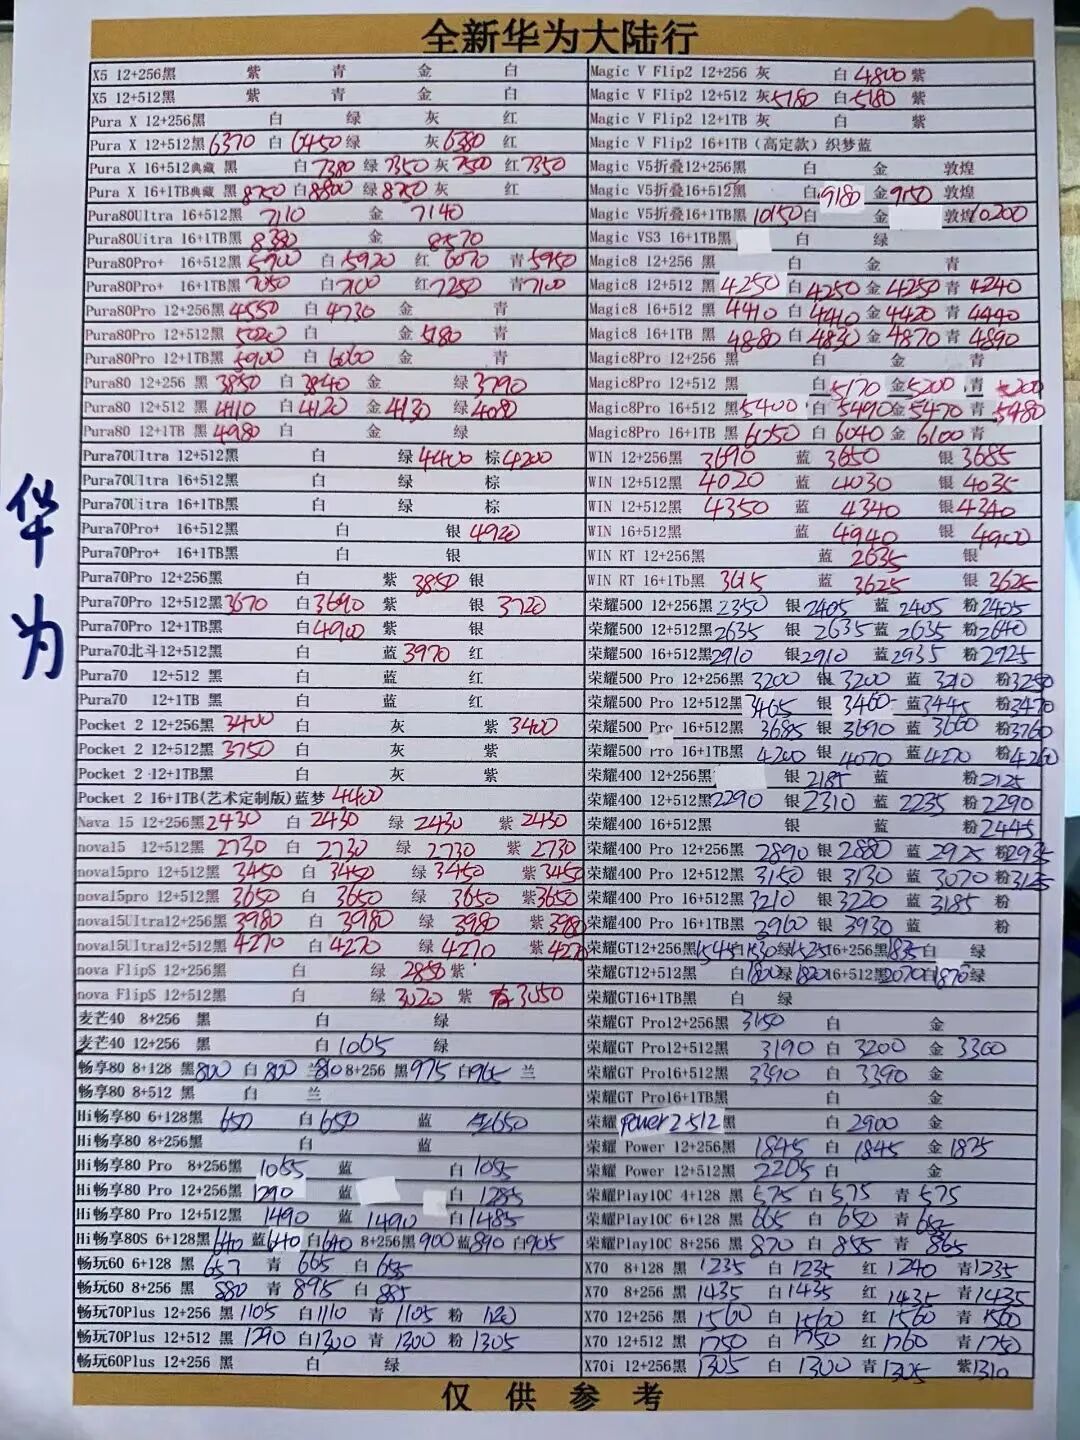 全新华为大陆行
华为
X5 12+256黑 紫 青 金 白
X5 12+512黑 紫 青 金 白
Pura X 12+256黑 白 绿 灰 红
Pura X 12+512黑 6370 白 6450 绿 灰 6380 红
Pura X 16+512典藏 黑 白 7380 绿 7350 灰 7500 红 7350
Pura X 16+1TB典藏 黑 8750 白 8800 绿 8750 灰 红
Pura80Ultra 16+512黑 7110 金 7140
Pura80Uitra 16+1TB黑 8380 金 8570
Pura80Pro+ 16+512黑 5900 白 5920 红 6070 青 5950
Pura80Pro+ 16+1TB黑 7050 白 7100 红 7250 青 7100
Pura80Pro 12+256黑 4550 白 4730 金 青
Pura80Pro 12+512黑 5020 白 金 5180 青
Pura80Pro 12+1TB黑 5900 白 6060 金 青
Pura80 12+256 黑 3850 白 3840 金 绿 3790
Pura80 12+512 黑 4110 白 4120 金 4130 绿 4080
Pura80 12+1TB 黑 4980 白 金 绿
Pura70Ultra 12+512黑 白 绿 4400 棕 4200
Pura70Ultra 16+512黑 白 绿 棕
Pura70Uitra 16+1TB黑 白 绿 棕
Pura70Pro+ 16+512黑 白 银 4920
Pura70Pro+ 16+1TB黑 白 银
Pura70Pro 12+256黑 白 紫 3850 银
Pura70Pro 12+512黑 3670 白 3690 紫 银 3720
Pura70Pro 12+1TB黑 白 4900 紫 银
Pura70北斗12+512黑 白 蓝 3970 红
Pura70 12+512 黑 白 蓝 红
Pura70 12+1TB 黑 白 蓝 红
Pocket 2 12+256黑 3400 白 灰 紫 3400
Pocket 2 12+512黑 3750 白 灰 紫
Pocket 2 12+1TB黑 白 灰 紫
Pocket 2 16+1TB(艺术定制版)蓝梦 4400
Nava 15 12+256黑 2430 白 2430 绿 2430 紫 2430
nova15 12+512黑 2730 白 2730 绿 2730 紫 2730
nova15pro 12+512黑 3450 白 3450 绿 3450 紫 3450
nova15pro 12+512黑 3650 白 3650 绿 3650 紫 3650
nova15Ultra12+256黑 3980 白 3980 绿 3980 紫 3980
nova15Ultra12+512黑 4270 白 4270 绿 4270 紫 4270
nova FlipS 12+256黑 白 绿 2850 紫
nova FlipS 12+512黑 白 绿 3020 紫 3050
麦芒40 8+256 黑 白 绿
麦芒40 12+256 黑 白 1065 绿
畅享80 8+128 黑 800 白 800 兰 810 8+256 黑 975 白 965 兰
畅享80 8+512 黑 白 兰
Hi畅享80 6+128黑 650 白 650 蓝 650
Hi畅享80 8+256黑 白 蓝
Hi畅享80 Pro 8+256黑 1055 蓝 白 1055
Hi畅享80 Pro 12+256黑 1290 蓝 白 1285
Hi畅享80 Pro 12+512黑 1490 蓝 1490 白 1485
Hi畅享80S 6+128黑 640 蓝 640 白 640 8+256黑 900 蓝 890 白 905
畅玩60 6+128 黑 653 青 665 白 655
畅玩60 8+256 黑 880 青 895 白 885
畅玩70Plus 12+256 黑 1105 白 1110 青 1105 粉 1120
畅玩70Plus 12+512 黑 1290 白 1300 青 1300 粉 1305
畅玩60Plus 12+256 黑 白 绿
Magic V Flip2 12+256 灰 白 4800 紫
Magic V Flip2 12+512 灰 5180 白 5180 紫
Magic V Flip2 12+1TB 灰 白 紫
Magic V Flip2 16+1TB(高定款)织梦蓝
Magic V5折叠12+256黑 白 金 敦煌
Magic V5折叠16+512黑 白 9180 金 9150 敦煌
Magic V5折叠16+1TB黑 10150 白 金 敦煌 10200
Magic VS3 16+1TB黑 白 绿
Magic8 12+256 黑 白 金 青
Magic8 12+512 黑 4250 白 4250 金 4250 青 4240
Magic8 16+512 黑 4410 白 4410 金 4420 青 4440
Magic8 16+1TB 黑 4880 白 4830 金 4870 青 4890
Magic8Pro 12+256 黑 白 金 青
Magic8Pro 12+512 黑 白 5170 金 5200 青 5200
Magic8Pro 16+512 黑 5400 白 5490 金 5470 青 5480
Magic8Pro 16+1TB 黑 6050 白 6040 金 6100 青
WIN 12+256黑 3690 蓝 3650 银 3685
WIN 12+512黑 4020 蓝 4030 银 4035
WIN 12+512黑 4350 蓝 4340 银 4340
WIN 16+512黑 蓝 4940 银 4900
WIN RT 12+256黑 蓝 2635 银
WIN RT 16+1Tb黑 3615 蓝 3625 银 3625
荣耀500 12+256黑 2350 银 2405 蓝 2405 粉 2405
荣耀500 12+512黑 2635 银 2635 蓝 2635 粉 2640
荣耀500 16+512黑 2910 银 2910 蓝 2935 粉 2925
荣耀500 Pro 12+256黑 3200 银 3200 蓝 3210 粉 3250
荣耀500 Pro 12+512黑 3465 银 3460 蓝 3445 粉 3470
荣耀500 Pro 16+512黑 3685 银 3690 蓝 3660 粉 3760
荣耀500 Pro 16+1TB黑 4200 银 4070 蓝 4270 粉 4260
荣耀400 12+256黑 银 2185 蓝 粉 2125
荣耀400 12+512黑 2290 银 2310 蓝 2235 粉 2290
荣耀400 16+512黑 银 蓝 粉 2445
荣耀400 Pro 12+256黑 2890 银 2880 蓝 2925 粉 2935
荣耀400 Pro 12+512黑 3150 银 3130 蓝 3070 粉 3125
荣耀400 Pro 16+512黑 3210 银 3220 蓝 3185 粉
荣耀400 Pro 16+1TB黑 3960 银 3930 蓝 粉
荣耀GT12+256黑 1545 白 1530 绿 1525 16+256黑 1835 白 绿
荣耀GT12+512黑 白 1800 绿 1820 16+512黑 2070 白 1870 绿
荣耀GT16+1TB黑 白 绿
荣耀GT Pro12+256黑 3150 白 金
荣耀GT Pro12+512黑 3190 白 3200 金 3300
荣耀GT Pro16+512黑 3390 白 3390 金
荣耀GT Pro16+1TB黑 白 金
荣耀 power2 512黑 白 2900
荣耀 Power 12+256黑 1845 白 1845 金 1875
荣耀 Power 12+512黑 2205 白 金
荣耀Play10C 4+128 黑 575 白 575 青 575
荣耀Play10C 6+128 黑 665 白 650 青 655
荣耀Play10C 8+256 黑 870 白 855 青 865
X70 8+128黑 1235 白 1235 红 1240 青 1235
X70 8+256黑 1435 白 1435 红 1435 青 1435
X70 12+256 黑 1560 白 1560 红 1560 青 1560
X70 12+512 黑 1750 白 1750 红 1760 青 1750
X70i 12+256黑 1305 白 1300 青 1305 紫 1310
仅供参考